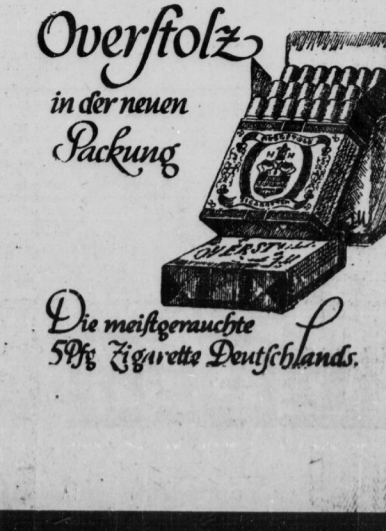 Overſtolz
in der neuen
Packung
OVERSTOLZ
Die meiſtgerauchte
5 Pfg Zigarette Deutſchlands.